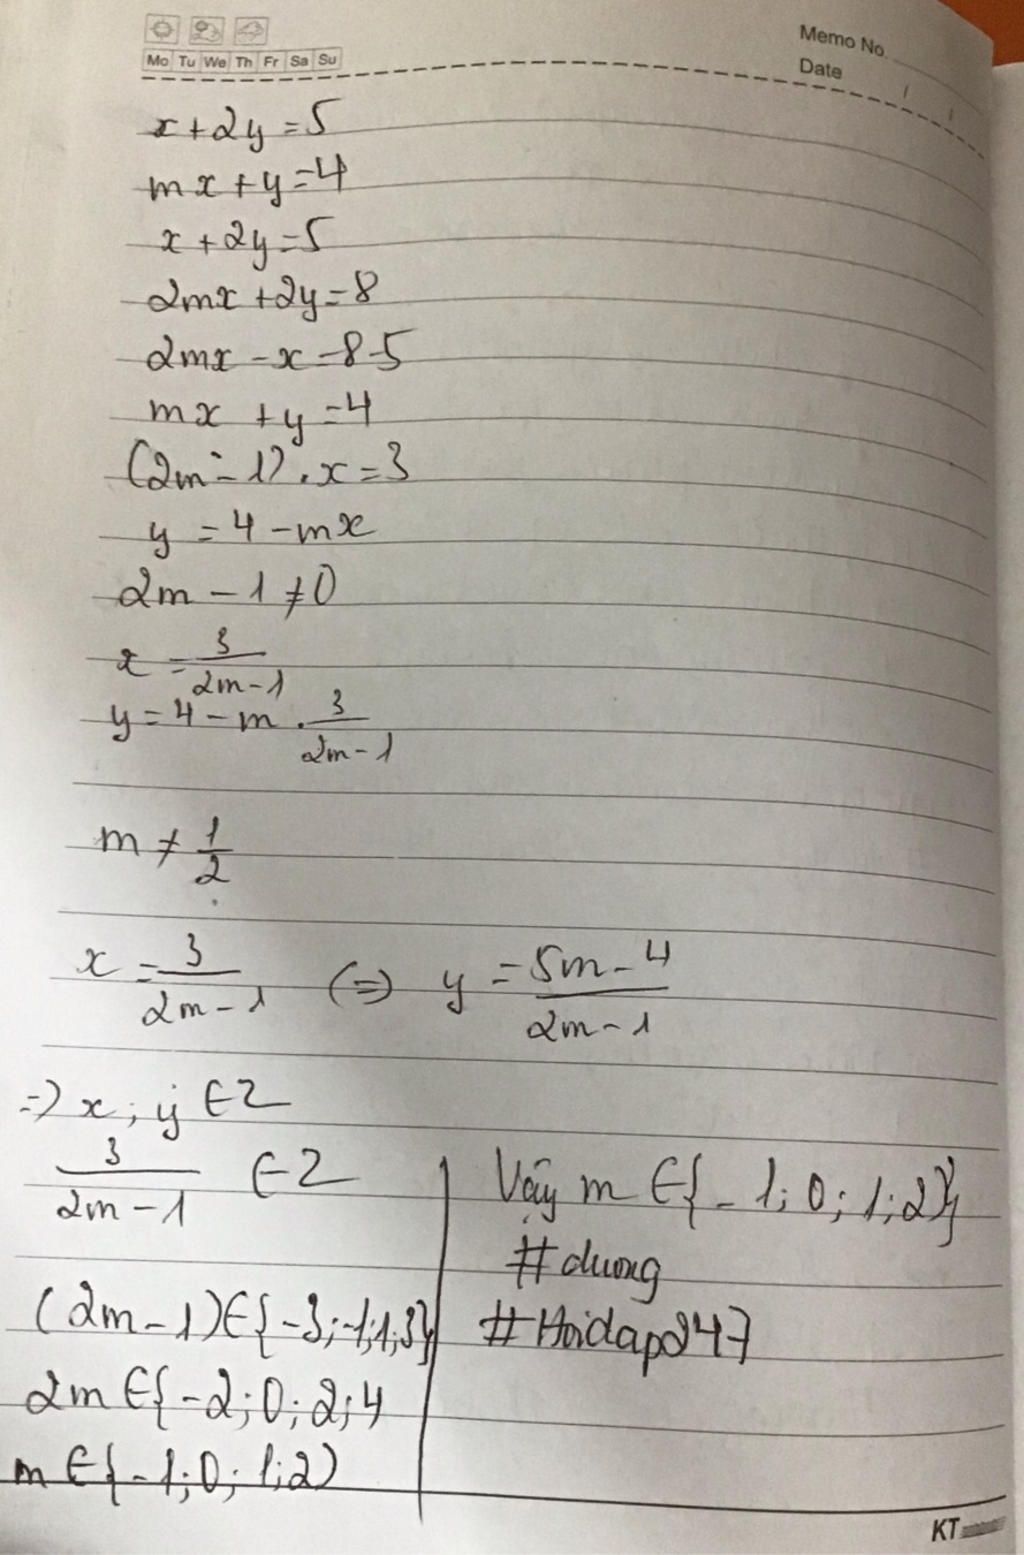 Memo No.
Mo Tu We Th Fr Sa Su
Date / /
x + 2y = 5
mx + y = 4
x + 2y = 5
2mx + 2y = 8
2mx - x = 8-5
mx + y = 4
(2m - 1) . x = 3
y = 4 - mx
2m - 1 ≠ 0
x = 3/(2m-1)
y = 4 - m . 3/(2m-1)
m ≠ 1/2
x = 3/(2m-1) (=) y = (5m-4)/(2m-1)
=) x ; y ∈ Z
3/(2m-1) ∈ Z
(2m - 1) ∈ {-3; -1; 1; 3}
2m ∈ {-2; 0; 2; 4
m ∈ {-1; 0; 1; 2)
Vậy m ∈ {-1; 0; 1; 2}
#duong
#Hoidap247
KT